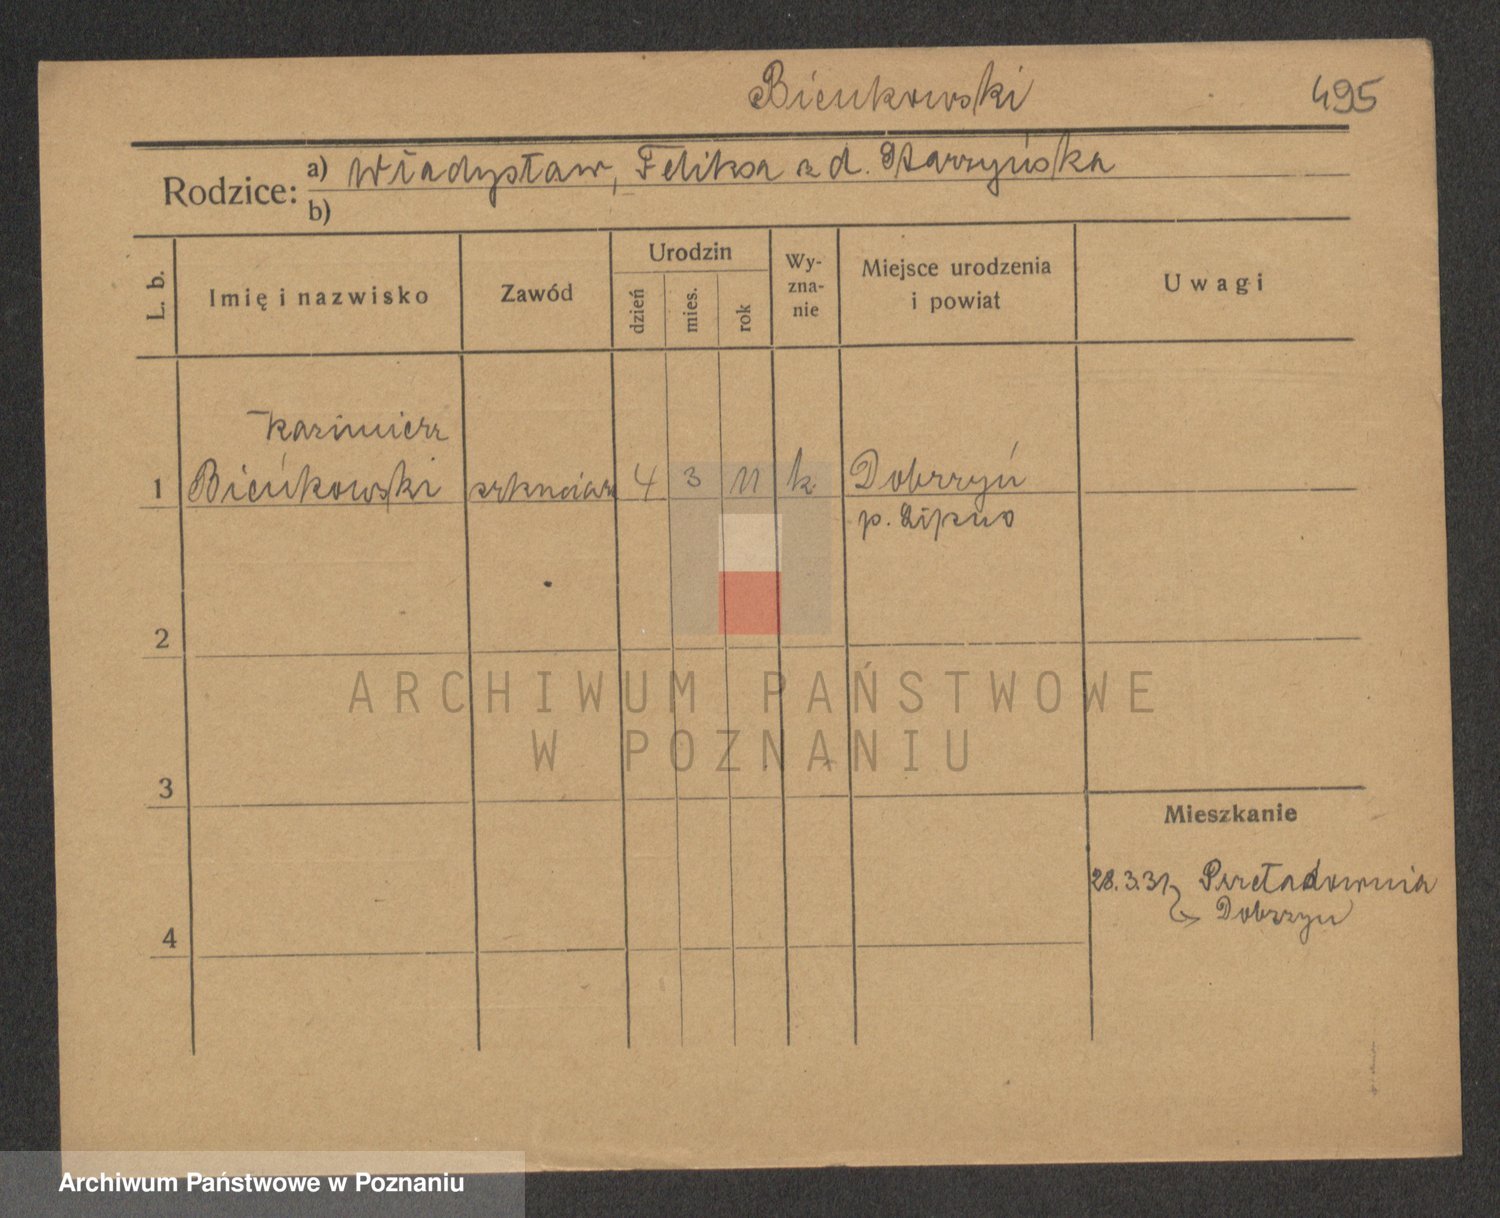 Bieńkowski 495
Rodzice: a) Władysław, Feliksa z d. Starzyńska
b)
L. b. Imię i nazwisko Zawód Urodzin dzień mies. rok Wy-zna-nie Miejsce urodzenia i powiat Uwagi
Kazimierz
1 Bieńkowski 4 3 11 k Dobrzyń
p. Lipno
2
ARCHIWUM PAŃSTWOWE
W POZNANIU
3
Mieszkanie
28.3.31 Dobrzyn
4
Archiwum Państwowe w Poznaniu